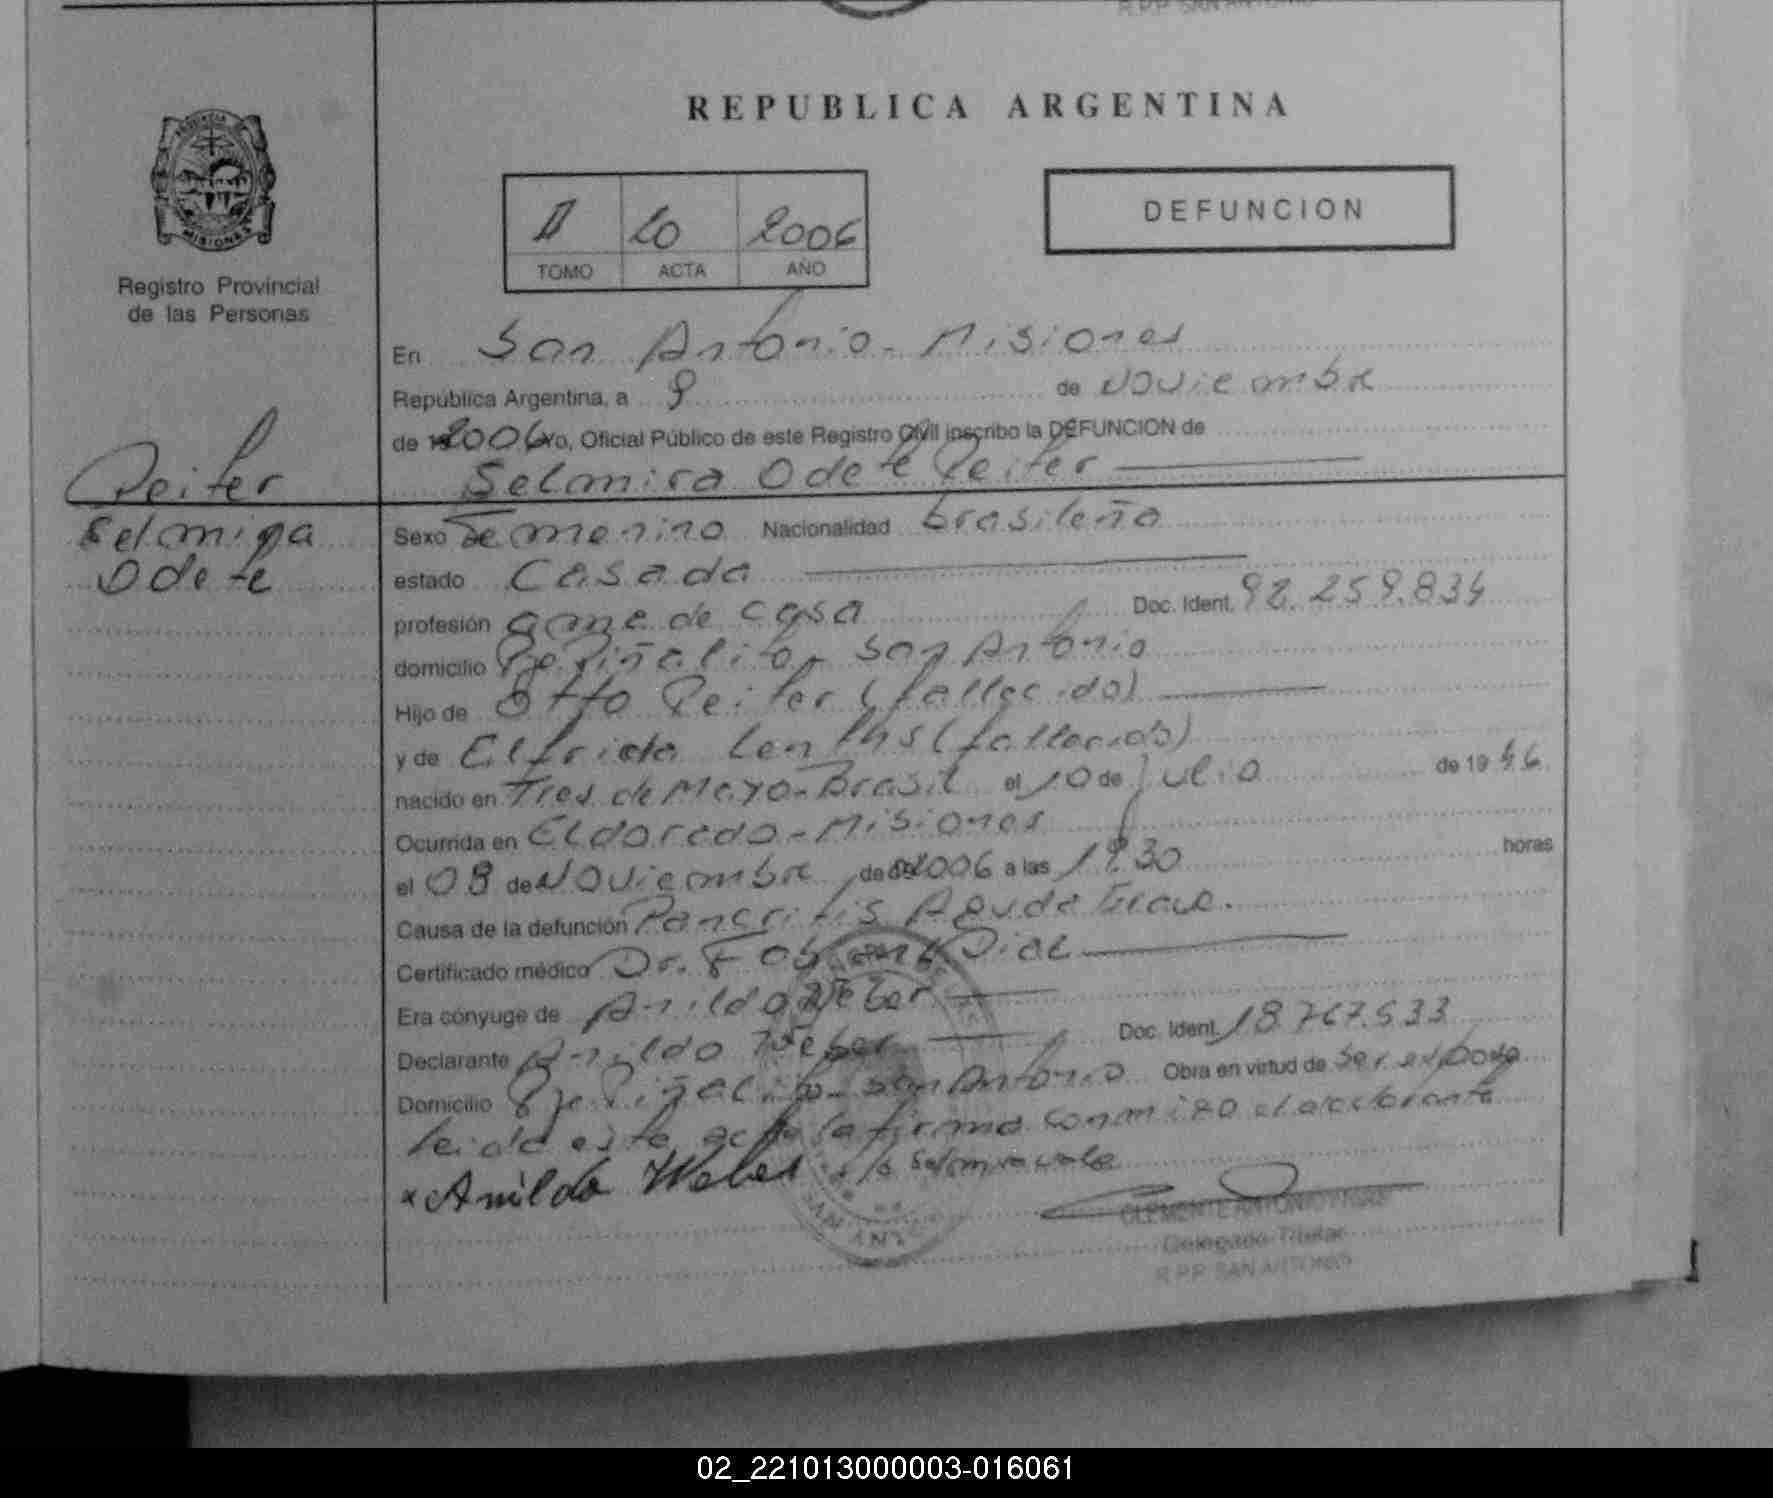 R.P.P. SAN ANTONIO
REPUBLICA ARGENTINA
PROVINCIA DE
MISIONES
Registro Provincial
de las Personas
II 20 2006
TOMO ACTA AÑO
DEFUNCION
En San Antonio - Misiones
República Argentina, a 9 de Noviembre
de 2006 Yo, Oficial Público de este Registro Civil inscribo la DEFUNCION de
Selmira Odete Reiter
Reiter
Selmira
Odete
Sexo Femenino Nacionalidad brasileña
estado Casada
profesión ama de casa Doc. Ident. 92.259.834
domicilio Pje. Piñalito - San Antonio
Hijo de Otto Reiter (fallecido)
y de Elfrida (fallecido)
nacido en Tres de Mayo - Brasil el 10 de julio de 1946
Ocurrida en Eldorado - Misiones
el 08 de Noviembre de 2006 a las 19.30 horas
Causa de la defunción Pancritis Aguda Grave.
Certificado médico Dr.
Era cónyuge de Anildo Weber
Declarante Anildo Weber Doc. Ident. 18.767.533
Domicilio Pje Piñalito - San Antonio Obra en virtud de ser esposo
leida este acta la firma conmigo el declarante
x Anildo Weber Selmira vale
CLEMENTE ANTONIO
Delegado Titular
R.P.P. SAN ANTONIO
02_221013000003-016061